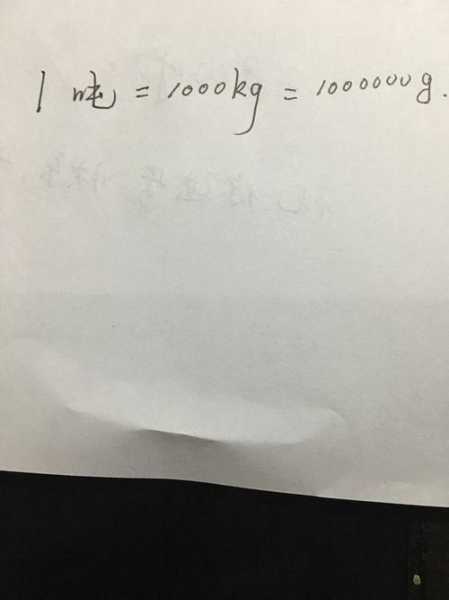 1 吨 = 1000kg = 1000000g.